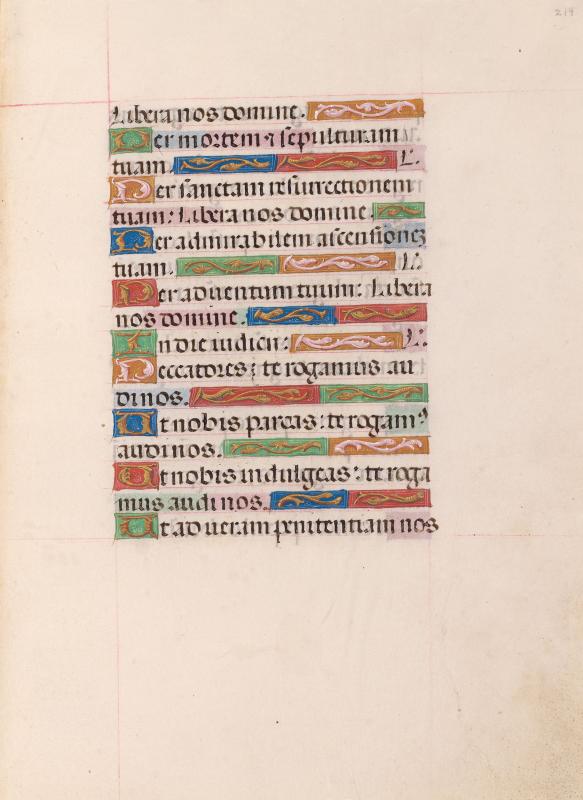 219
Libera nos domine.
Per mortem ⁊ sepulturam
tuam. L.
Per sanctam resurrectionem
tuam: Libera nos domine.
Per admirabilem ascensionez
tuam. L.
Per aduentum tuum: Libera
nos domine.
In die iudicii: L.
Peccatores: te rogamus au
di nos.
Ut nobis parcas: te rogamꝰ
audi nos.
Ut nobis indulgeas: te roga
mus audi nos.
Ut ad ueram penitentiam nos